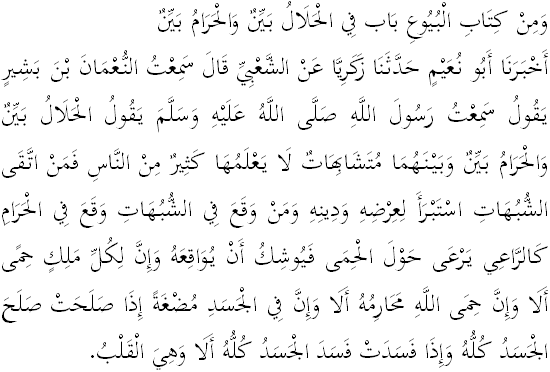 وَمِنْ كِتَابِ الْبُيُوعِ بَاب فِي الْحَلَالُ بَيِّنٌ وَالْحَرَامُ بَيِّنٌ
أَخْبَرَنَا أَبُو نُعَيْمٍ حَدَّثَنَا زَكَرِيَّا عَنْ الشَّعْبِيِّ قَالَ سَمِعْتُ النُّعْمَانَ بْنَ بَشِيرٍ
يَقُولُ سَمِعْتُ رَسُولَ اللَّهِ صَلَّى اللَّهُ عَلَيْهِ وَسَلَّمَ يَقُولُ الْحَلَالُ بَيِّنٌ
وَالْحَرَامُ بَيِّنٌ وَبَيْنَهُمَا مُتَشَابِهَاتٌ لَا يَعْلَمُهَا كَثِيرٌ مِنْ النَّاسِ فَمَنْ اتَّقَى
الشُّبُهَاتِ اسْتَبْرَأَ لِعِرْضِهِ وَدِينِهِ وَمَنْ وَقَعَ فِي الشُّبُهَاتِ وَقَعَ فِي الْحَرَامِ
كَالرَّاعِي يَرْعَى حَوْلَ الْحِمَى فَيُوشِكُ أَنْ يُوَاقِعَهُ وَإِنَّ لِكُلِّ مَلِكٍ حِمًى
أَلَا وَإِنَّ حِمَى اللَّهِ مَحَارِمُهُ أَلَا وَإِنَّ فِي الْجَسَدِ مُضْغَةً إِذَا صَلَحَتْ صَلَحَ
الْجَسَدُ كُلُّهُ وَإِذَا فَسَدَتْ فَسَدَ الْجَسَدُ كُلُّهُ أَلَا وَهِيَ الْقَلْبُ.